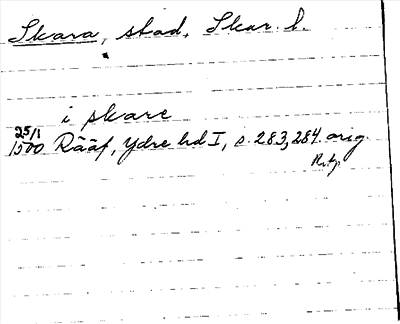 Skara, stad, Skar. l.
i skare
25/1
1500 Rääf, Ydre hd I, s. 283, 284. orig.